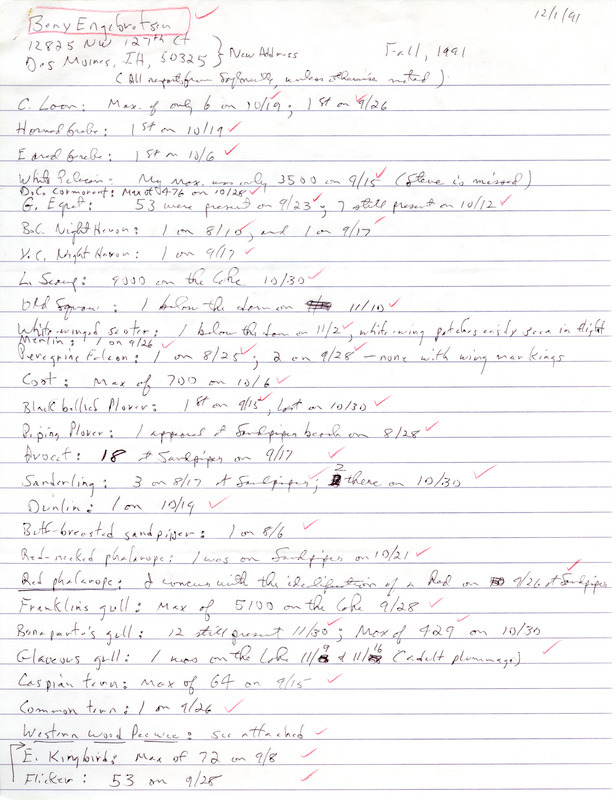 12/1/91
Bery Engebretsen
12825 NW 127th Ct
Des Moines, IA, 50325 } New Address
Fall, 1991
(All reports from Saylorville, unless otherwise noted)
C. Loon: Max. of only 6 on 10/19; 1st on 9/26
Horned Grebe: 1st on 10/19
Eared Grebe: 1st on 10/6
White Pelican: My max. was only 3500 on 9/15 (Steve is missed)
D.C. Cormorant: Max of 476 on 10/28
G. Egret: 53 were present on 9/23; 7 still present on 10/12
B.C. Night Heron: 1 on 8/10, and 1 on 9/17
Y.C. Night Heron: 1 on 9/17
L. Scaup: 9000 on the Lake 10/30
Old Squaw: 1 below the dam on 11/10
White-winged scoter: 1 below the dam on 11/2, white-wing patches easily seen in flight
Merlin: 1 on 9/26
Peregrine Falcon: 1 on 8/25; 2 on 9/28 - none with wing markings
Coot: Max of 700 on 10/6
Black bellied Plover: 1st on 9/15, Last on 10/30
Piping Plover: 1 appeared at Sandpiper beach on 8/28
Avocet: 18 at Sandpiper on 9/17
Sanderling: 3 on 8/17 at Sandpiper; 2 there on 10/30
Dunlin: 1 on 10/19
Buff-breasted sandpiper: 1 on 8/6
Red-necked phalarope: 1 was on Sandpiper on 10/21
Red phalarope: I concur with the identification of a Red on 9/26 at Sandpiper
Franklin's gull: Max of 5100 on the Lake 9/28
Bonaparte's gull: 12 still present 11/30; Max of 429 on 10/30
Glaucous gull: 1 was on the Lake 11/9 & 11/16 (adult plummage)
Caspian tern: Max of 64 on 9/15
Common tern: 1 on 9/26
Western Wood Peewee: see attached
E. Kingbird: Max of 72 on 9/8
Flicker: 53 on 9/28